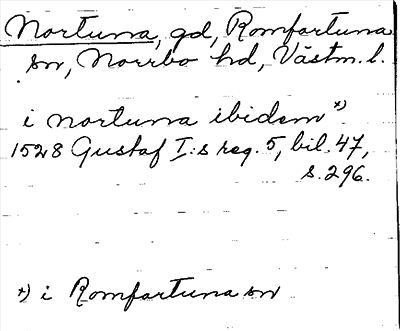 Nortuna, gd, Romfartuna
sn, Norrbo hd, Västm. l.
i nortuna ibidem *)
1528 Gustaf I:s reg. 5, bil. 47,
s. 296.
*) i Romfartuna sn